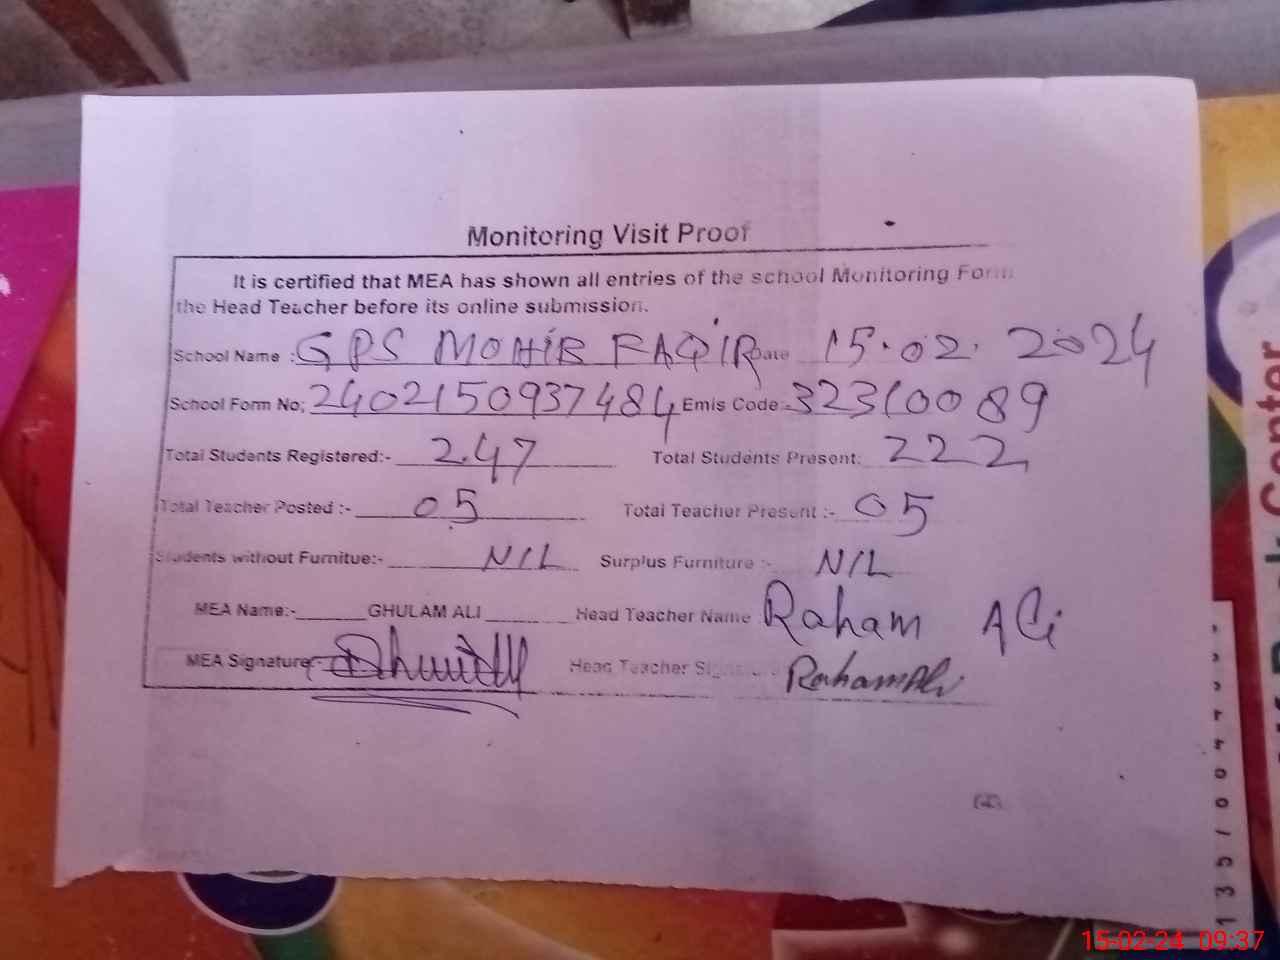 Monitoring Visit Proof
It is certified that MEA has shown all entries of the school Monitoring Form
the Head Teacher before its online submission.
School Name :- GPS MOHIB FAQIR Date 15.02.2024
School Form No; 2402150937484 Emis Code:- 32310089
Total Students Registered:- 247 Total Students Present: 222
Total Teacher Posted :- 05 Total Teacher Present :- 05
Students without Furnitue:- NIL Surplus Furniture :- NIL
MEA Name:- GHULAM ALI Head Teacher Name Raham Ali
MEA Signature:- Head Teacher Signature RahamAli
Center
15-02-24 09:37